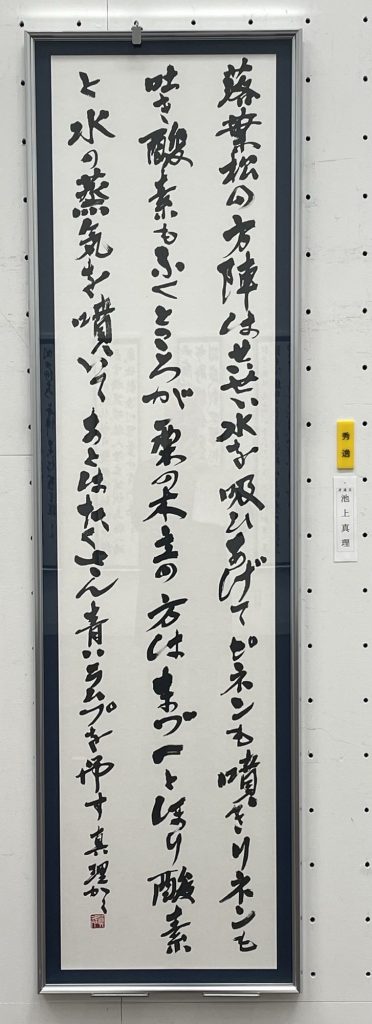 落葉松の方陣はせいせい水を吸ひあげてピネンも噴きリネンも
吐き酸素もふくところが栗の木立の方はまづ一とほり酸素
と水の蒸気を噴いてあとはたくさん青いラムプを吊す 真理かく
秀逸
池上真理